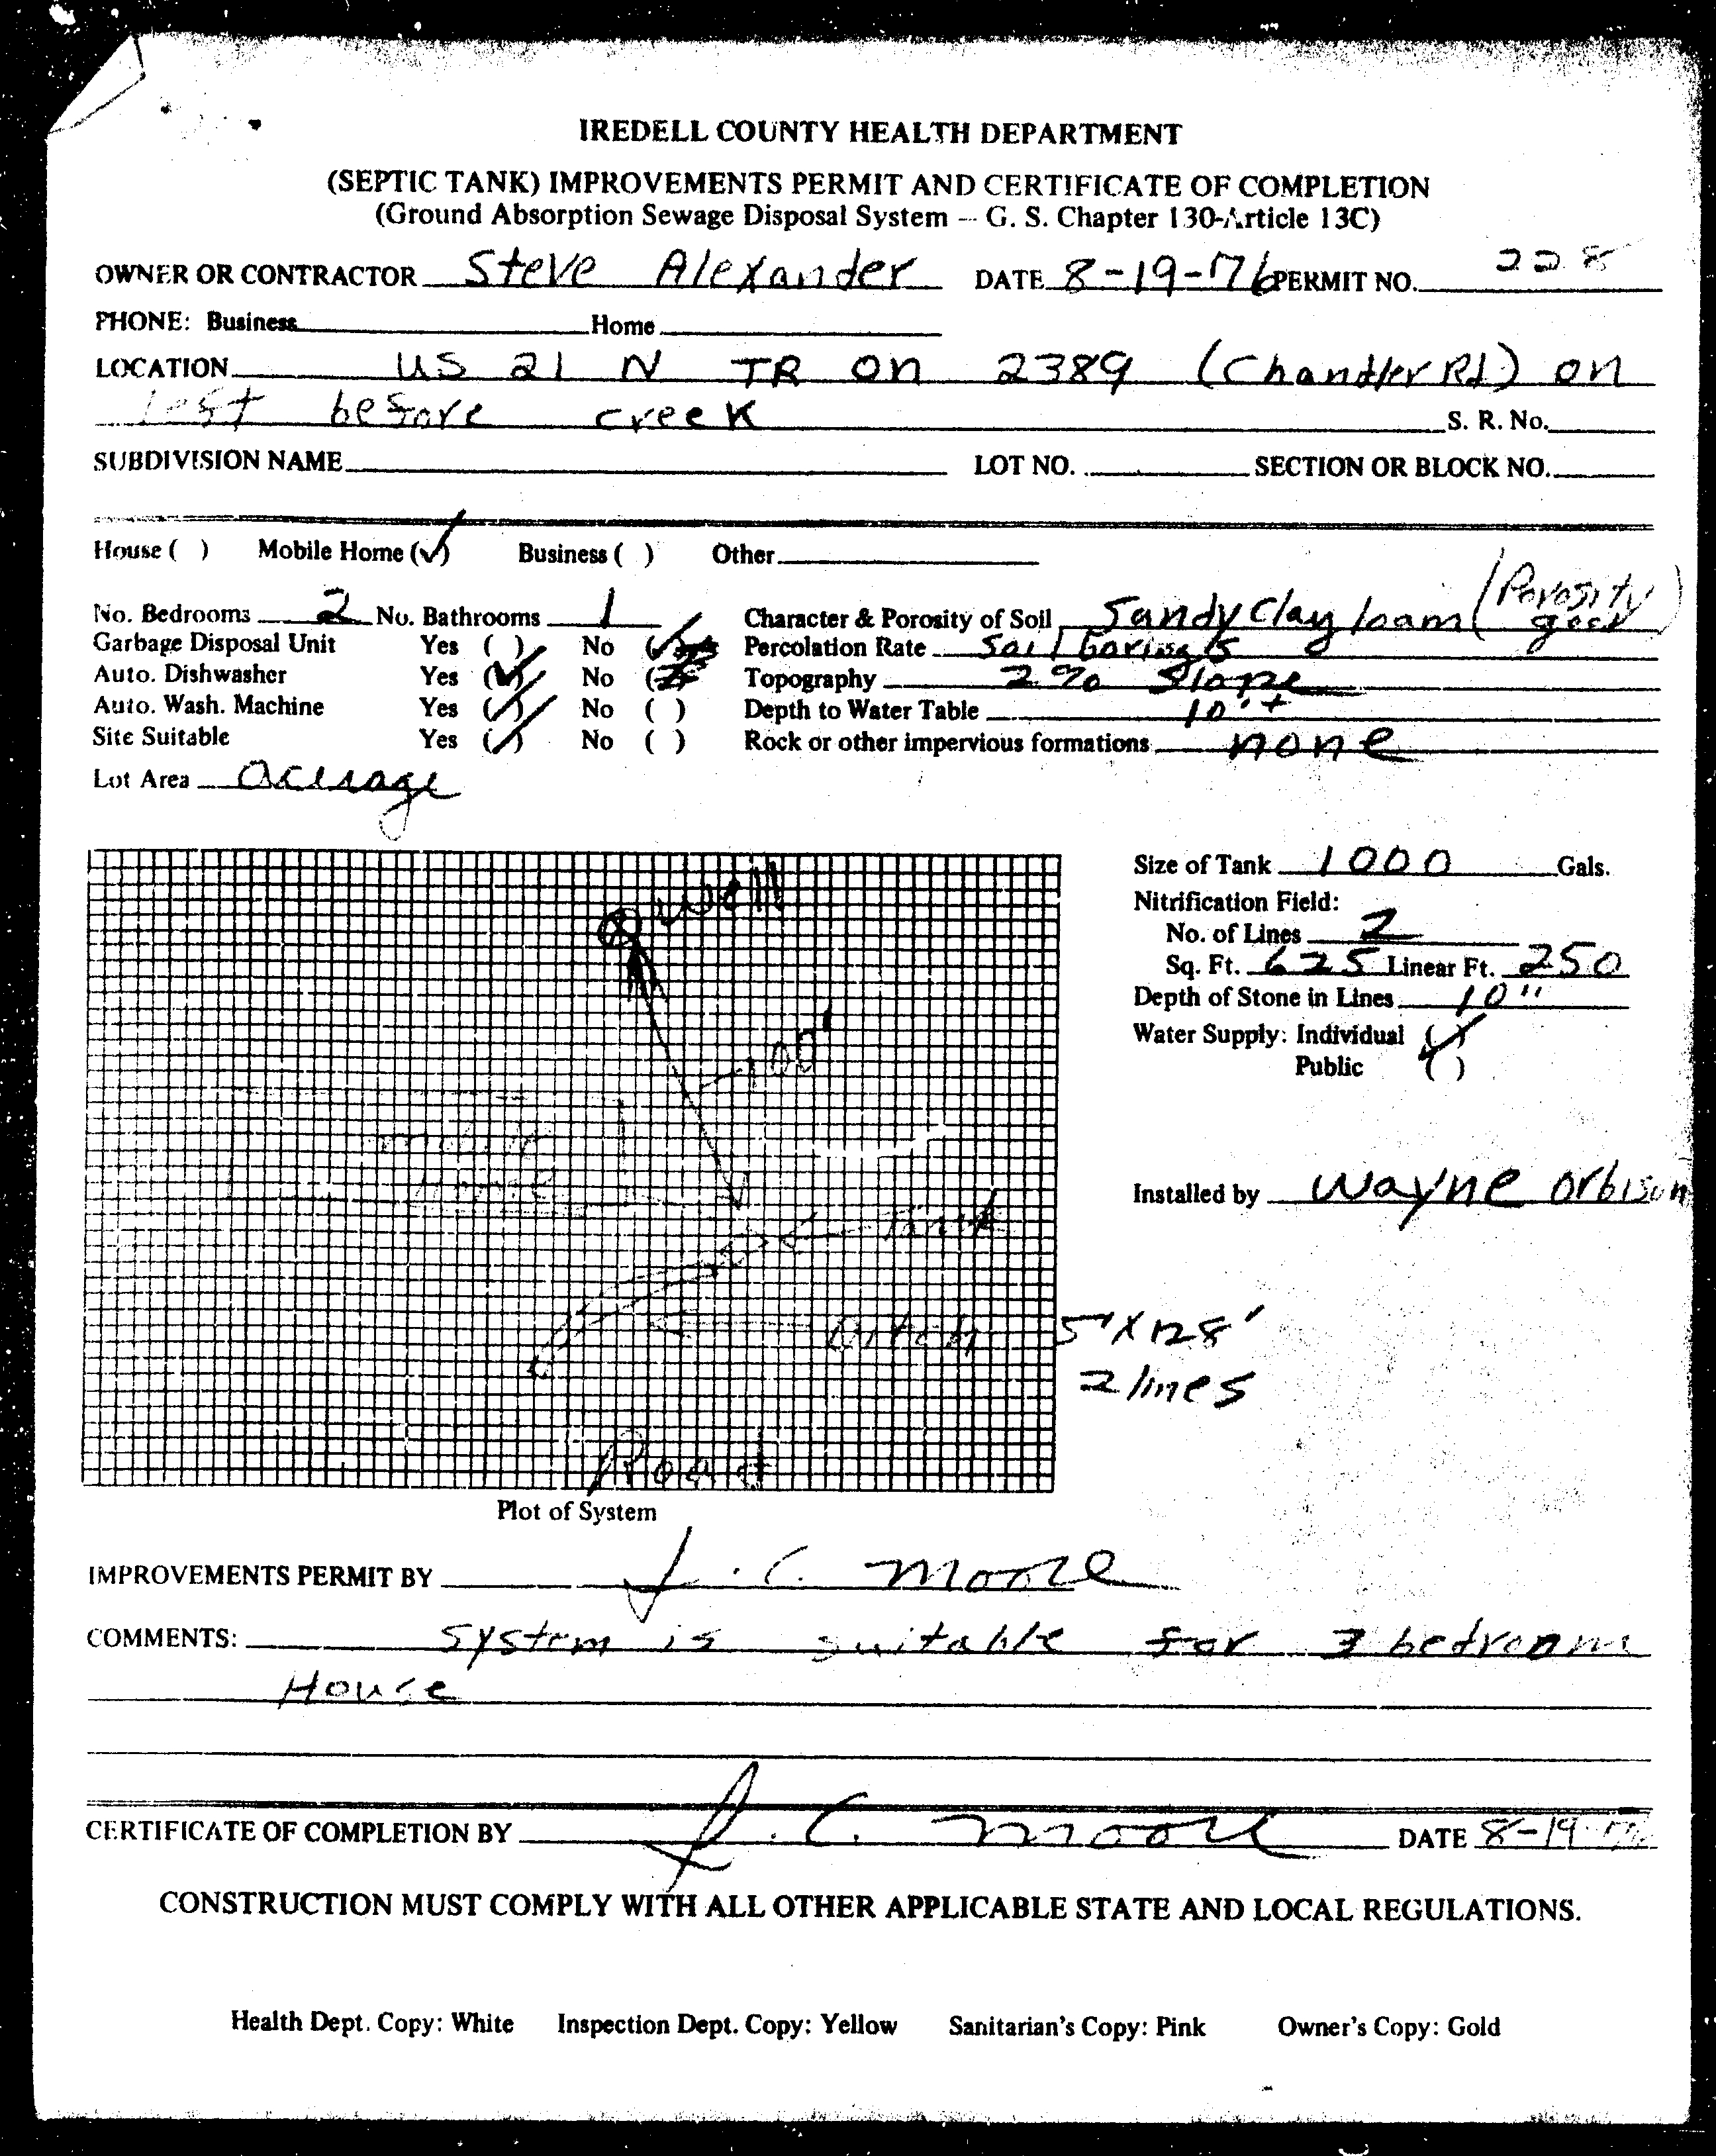 IREDELL COUNTY HEALTH DEPARTMENT
(SEPTIC TANK) IMPROVEMENTS PERMIT AND CERTIFICATE OF COMPLETION
(Ground Absorption Sewage Disposal System – G. S. Chapter 130-Article 13C)
OWNER OR CONTRACTOR Steve Alexander DATE 8-19-76 PERMIT NO. 228
PHONE: Business Home
LOCATION US 21 N TR on 2389 (Chandler Rd) on
left before creek S. R. No.
SUBDIVISION NAME LOT NO. SECTION OR BLOCK NO.
House ( ) Mobile Home (✓) Business ( ) Other
No. Bedrooms 2 No. Bathrooms 1 Character & Porosity of Soil Sandy Clay loam (Porosity good)
Garbage Disposal Unit Yes ( ) No (✓) Percolation Rate Soil borings
Auto. Dishwasher Yes (✓) No ( ) Topography 2% Slope
Auto. Wash. Machine Yes (✓) No ( ) Depth to Water Table 10'+
Site Suitable Yes (✓) No ( ) Rock or other impervious formations none
Lot Area acerage
well
100'
mobile
home
tank
ditch
Road
Size of Tank 1000 Gals.
Nitrification Field:
No. of Lines 2
Sq. Ft. 625 Linear Ft. 250
Depth of Stone in Lines 10"
Water Supply: Individual (✓)
Public ( )
Installed by Wayne Orbison
5' X 128'
2 lines
Plot of System
IMPROVEMENTS PERMIT BY J. C. Moore
COMMENTS: System is suitable for 3 bedroom
House
CERTIFICATE OF COMPLETION BY J. C. Moore DATE 8-19-76
CONSTRUCTION MUST COMPLY WITH ALL OTHER APPLICABLE STATE AND LOCAL REGULATIONS.
Health Dept. Copy: White Inspection Dept. Copy: Yellow Sanitarian's Copy: Pink Owner's Copy: Gold